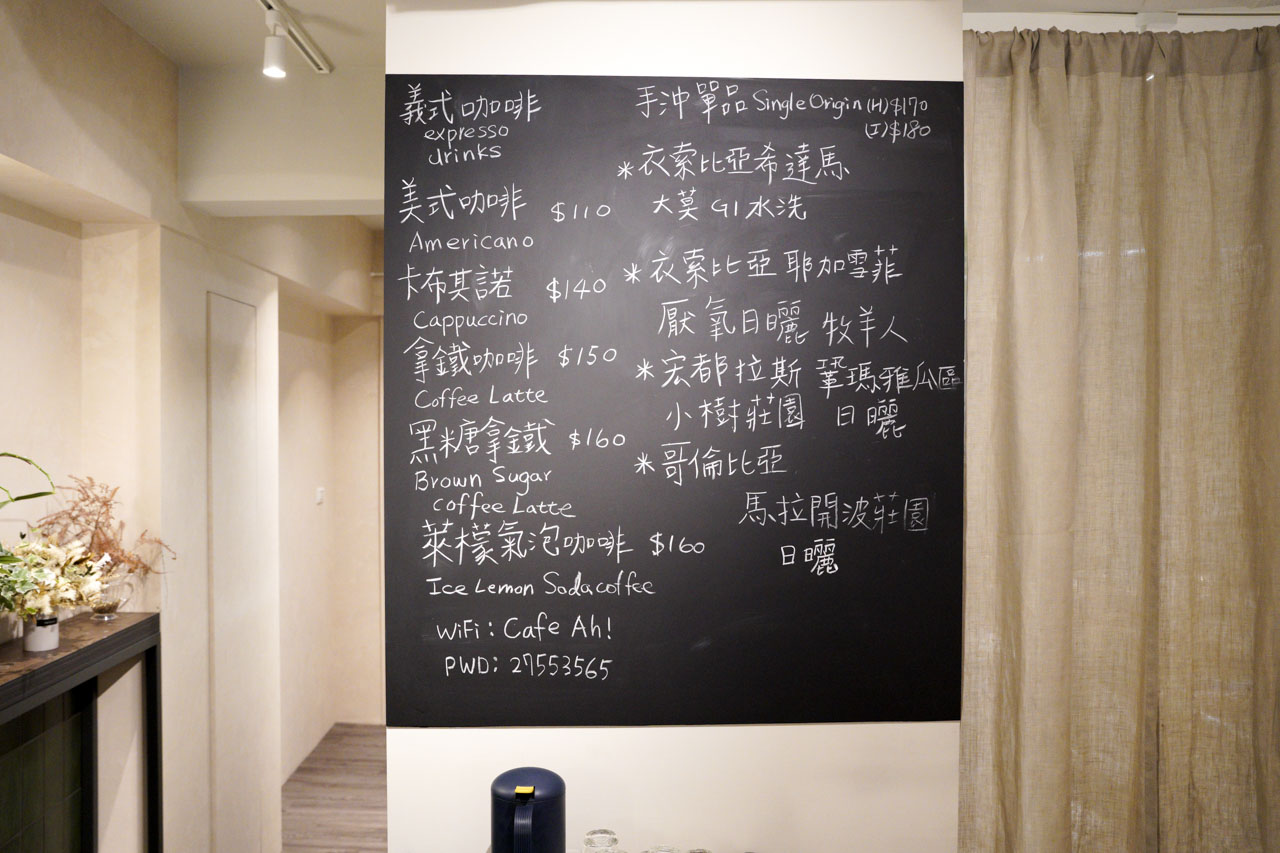 義式咖啡
expresso
drinks
美式咖啡 $110
Americano
卡布其諾 $140
Cappuccino
拿鐵咖啡 $150
Coffee Latte
黑糖拿鐵 $160
Brown Sugar
coffee Latte
萊檬氣泡咖啡 $160
Ice Lemon Soda coffee
WiFi: Cafe Ah!
PWD: 27553565
手沖單品 Single Origin (H) $170
(I) $180
*衣索比亞希達馬
大莫 G1 水洗
*衣索比亞 耶加雪菲
厭氧日曬 牧羊人
*宏都拉斯 鞏瑪雅瓜區
小樹莊園 日曬
*哥倫比亞
馬拉開波莊園
日曬